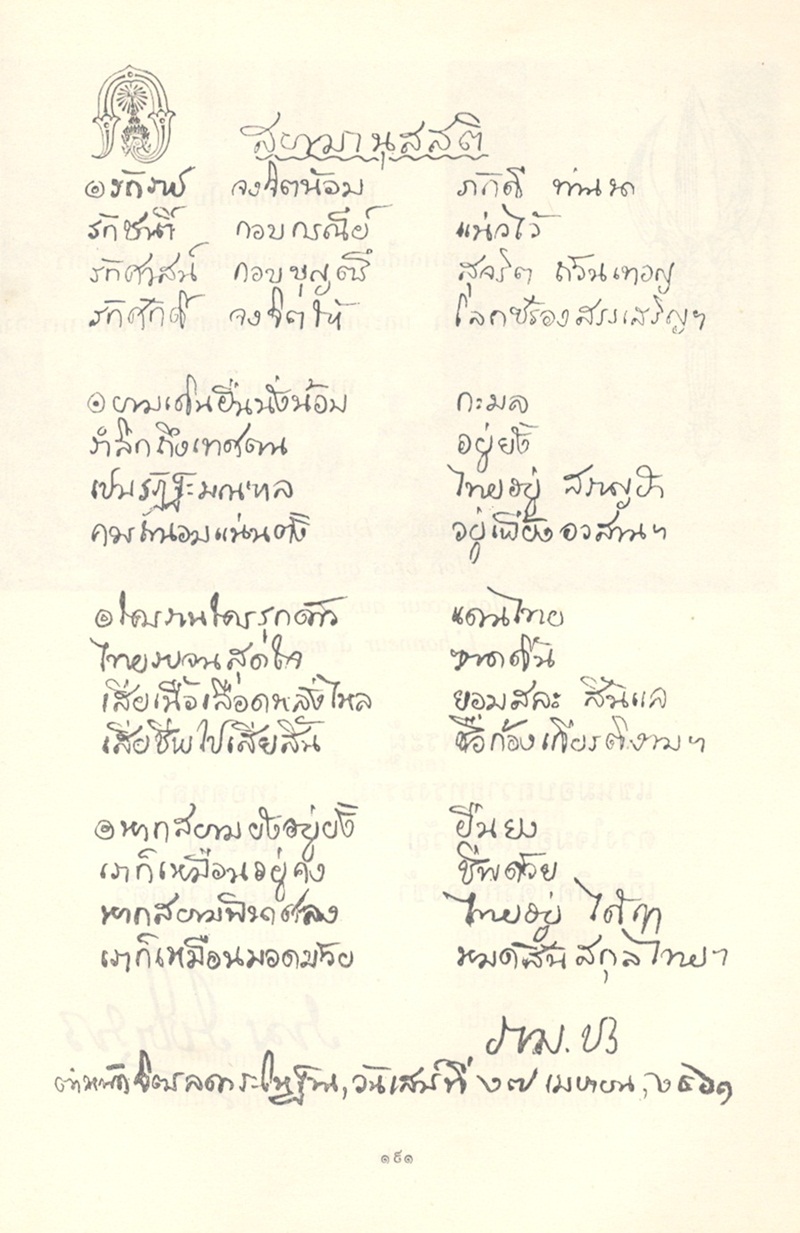 สยามานุสสติ
๏ รักราช จงจิตน้อม ภักดี ท่านนา
รักชาติ กอบกรณีย์ แน่วไว้
รักศาสน์ กอบบุญตรี สุจริต ถ้วนเทอญ
รักศักดิ์ จงจิตให้ โลกซร้องสรรเสริญฯ
๏ ยามเดินยืนนั่งน้อม กะมล
รำลึกถึงเทศตน อยู่ยั้ง
เปนรัฏฐะมณฑล ไทยอยู่ สราญฮา
ควรถนอมแน่นตั้ง อยู่เพี้ยงอวสานฯ
๏ ใครรานใครรุกด้าว แดนไทย
ไทยรบจนสุดใจ ขาดดิ้น
เสียเนื้อเลือดหลั่งไหล ยอมสละ สิ้นแล
เสียชีพไป่เสียสิ้น ชื่อก้องเกียรติงามฯ
๏ หากสยามยังอยู่ยั้ง ยืนยง
เราก็เหมือนอยู่คง ชีพด้วย
หากสยามพินาศลง ไทยอยู่ ได้ฤๅ
เราก็เหมือนมอดม้วย หมดสิ้นสกุลไทยฯ
ราม. ปร
ตำหนักจิตรลดาระโหฐาน, วันเสาร์ที่ ๒๗ เมษายน, ๒๔๖๑
๑๙๑